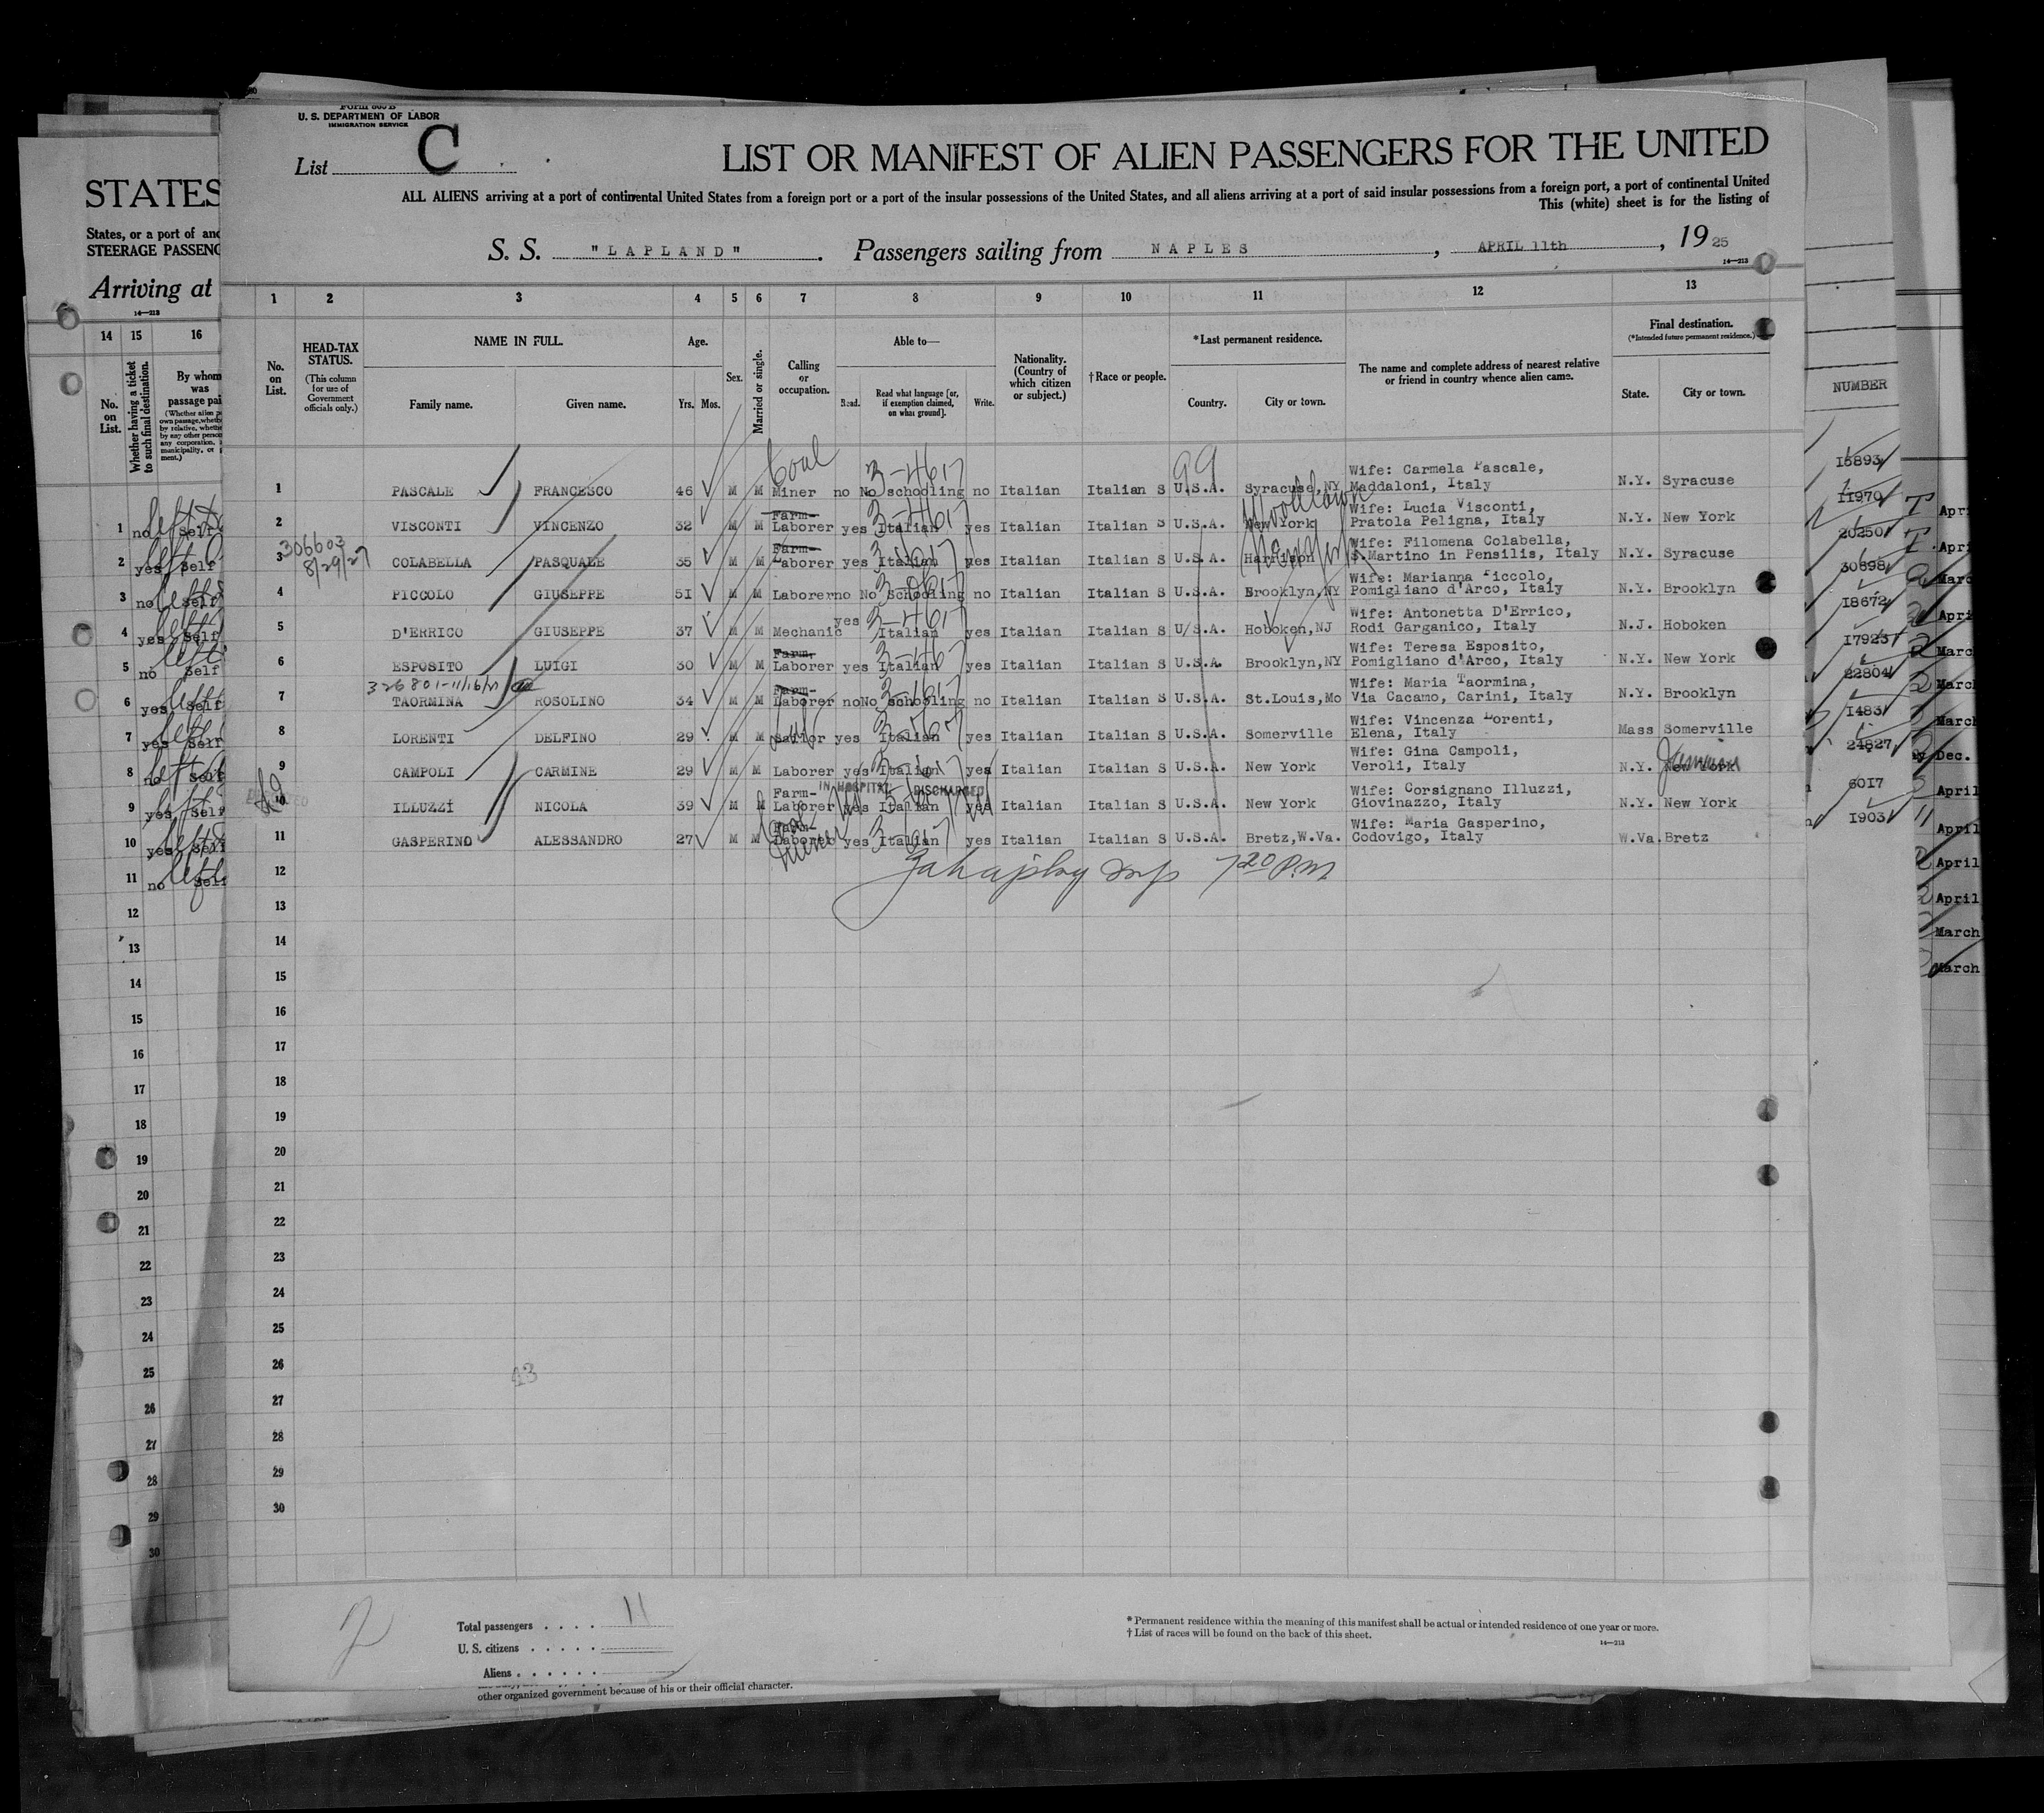 Form 500 B
U. S. DEPARTMENT OF LABOR
IMMIGRATION SERVICE
List C
LIST OR MANIFEST OF ALIEN PASSENGERS FOR THE UNITED
ALL ALIENS arriving at a port of continental United States from a foreign port or a port of the insular possessions of the United States, and all aliens arriving at a port of said insular possessions from a foreign port, a port of continental United
This (white) sheet is for the listing of
S. S. "LAPLAND". Passengers sailing from NAPLES, APRIL 11th, 1925
14—213
1 2 3 4 5 6 7 8 9 10 11 12 13
No. on List.
HEAD-TAX STATUS.
(This column for use of Government officials only.)
NAME IN FULL.
Family name. Given name.
Age.
Yrs. Mos.
Sex.
Married or single.
Calling or occupation.
Able to—
Read. Read what language [or, if exemption claimed, on what ground]. Write.
Nationality. (Country of which citizen or subject.)
†Race or people.
*Last permanent residence.
Country. City or town.
The name and complete address of nearest relative or friend in country whence alien came.
Final destination.
(*Intended future permanent residence.)
State. City or town.
Coal 3-4617 99
1 PASCALE FRANCESCO 46 M M Miner no No schooling no Italian Italian S U.S.A. Syracuse, NY Wife: Carmela Pascale, Maddaloni, Italy N.Y. Syracuse
Woodlawn
2 VISCONTI VINCENZO 32 M M Farm-Laborer yes Italian yes Italian Italian S U.S.A. New York Wife: Lucia Visconti, Pratola Peligna, Italy N.Y. New York
306603 8/29/27
3 COLABELLA PASQUALE 35 M M Farm-Laborer yes Italian yes Italian Italian S U.S.A. Harrison Wife: Filomena Colabella, S.Martino in Pensilis, Italy N.Y. Syracuse
4 PICCOLO GIUSEPPE 51 M M Laborer no No schooling no Italian Italian S U.S.A. Brooklyn, NY Wife: Marianna Piccolo, Pomigliano d'Arco, Italy N.Y. Brooklyn
5 D'ERRICO GIUSEPPE 37 M M Mechanic yes Italian yes Italian Italian S U/S.A. Hoboken, NJ Wife: Antonetta D'Errico, Rodi Garganico, Italy N.J. Hoboken
6 ESPOSITO LUIGI 30 M M Farm, Laborer yes Italian yes Italian Italian S U.S.A. Brooklyn, NY Wife: Teresa Esposito, Pomigliano d'Arco, Italy N.Y. New York
7 TAORMINA ROSOLINO 34 M M Farm-Laborer no No schooling no Italian Italian S U.S.A. St.Louis, Mo Wife: Maria Taormina, Via Cacamo, Carini, Italy N.Y. Brooklyn
8 LORENTI DELFINO 29 M M yes Italian yes Italian Italian S U.S.A. Somerville Wife: Vincenza Lorenti, Elena, Italy Mass Somerville
9 CAMPOLI CARMINE 29 M M Laborer yes Italian yes Italian Italian S U.S.A. New York Wife: Gina Campoli, Veroli, Italy N.Y. New York
IN HOSPITAL DISCHARGED
10 ILLUZZÍ NICOLA 39 M M Farm-Laborer yes Italian yes Italian Italian S U.S.A. New York Wife: Corsignano Illuzzi, Giovinazzo, Italy N.Y. New York
Coal Miner
11 GASPERINO ALESSANDRO 27 M M Farm-Laborer yes Italian yes Italian Italian S U.S.A. Bretz, W.Va. Wife: Maria Gasperino, Codovigo, Italy W.Va. Bretz
12 7 20 P.M.
13
14
15
16
17
18
19
20
21
22
23
24
25
26
27
28
29
30
43
Total passengers . . . . 11
U. S. citizens . . . . .
Aliens . . . . . .
* Permanent residence within the meaning of this manifest shall be actual or intended residence of one year or more.
† List of races will be found on the back of this sheet.
14—213
other organized government because of his or their official character.
STATES
States, or a port of
STEERAGE
Arriving at
14—213
14 15 16
No. on List.
Whether having a ticket to such final destination.
By whom was
1 no Self
2 yes Self
3 no Self
4 yes Self
5 no Self
6 yes Self
7 yes Self
8 no Self
9 yes Self
10 yes Self
11 no Self
12
13
14
15
16
17
18
19
20
21
22
23
24
25
26
27
28
29
30
NUMBER
15893
11970
20250
30698
18672
17923
22804
1483
24827
6017
1903
April
April
March
March
Dec.
April
April
April
April
March
March